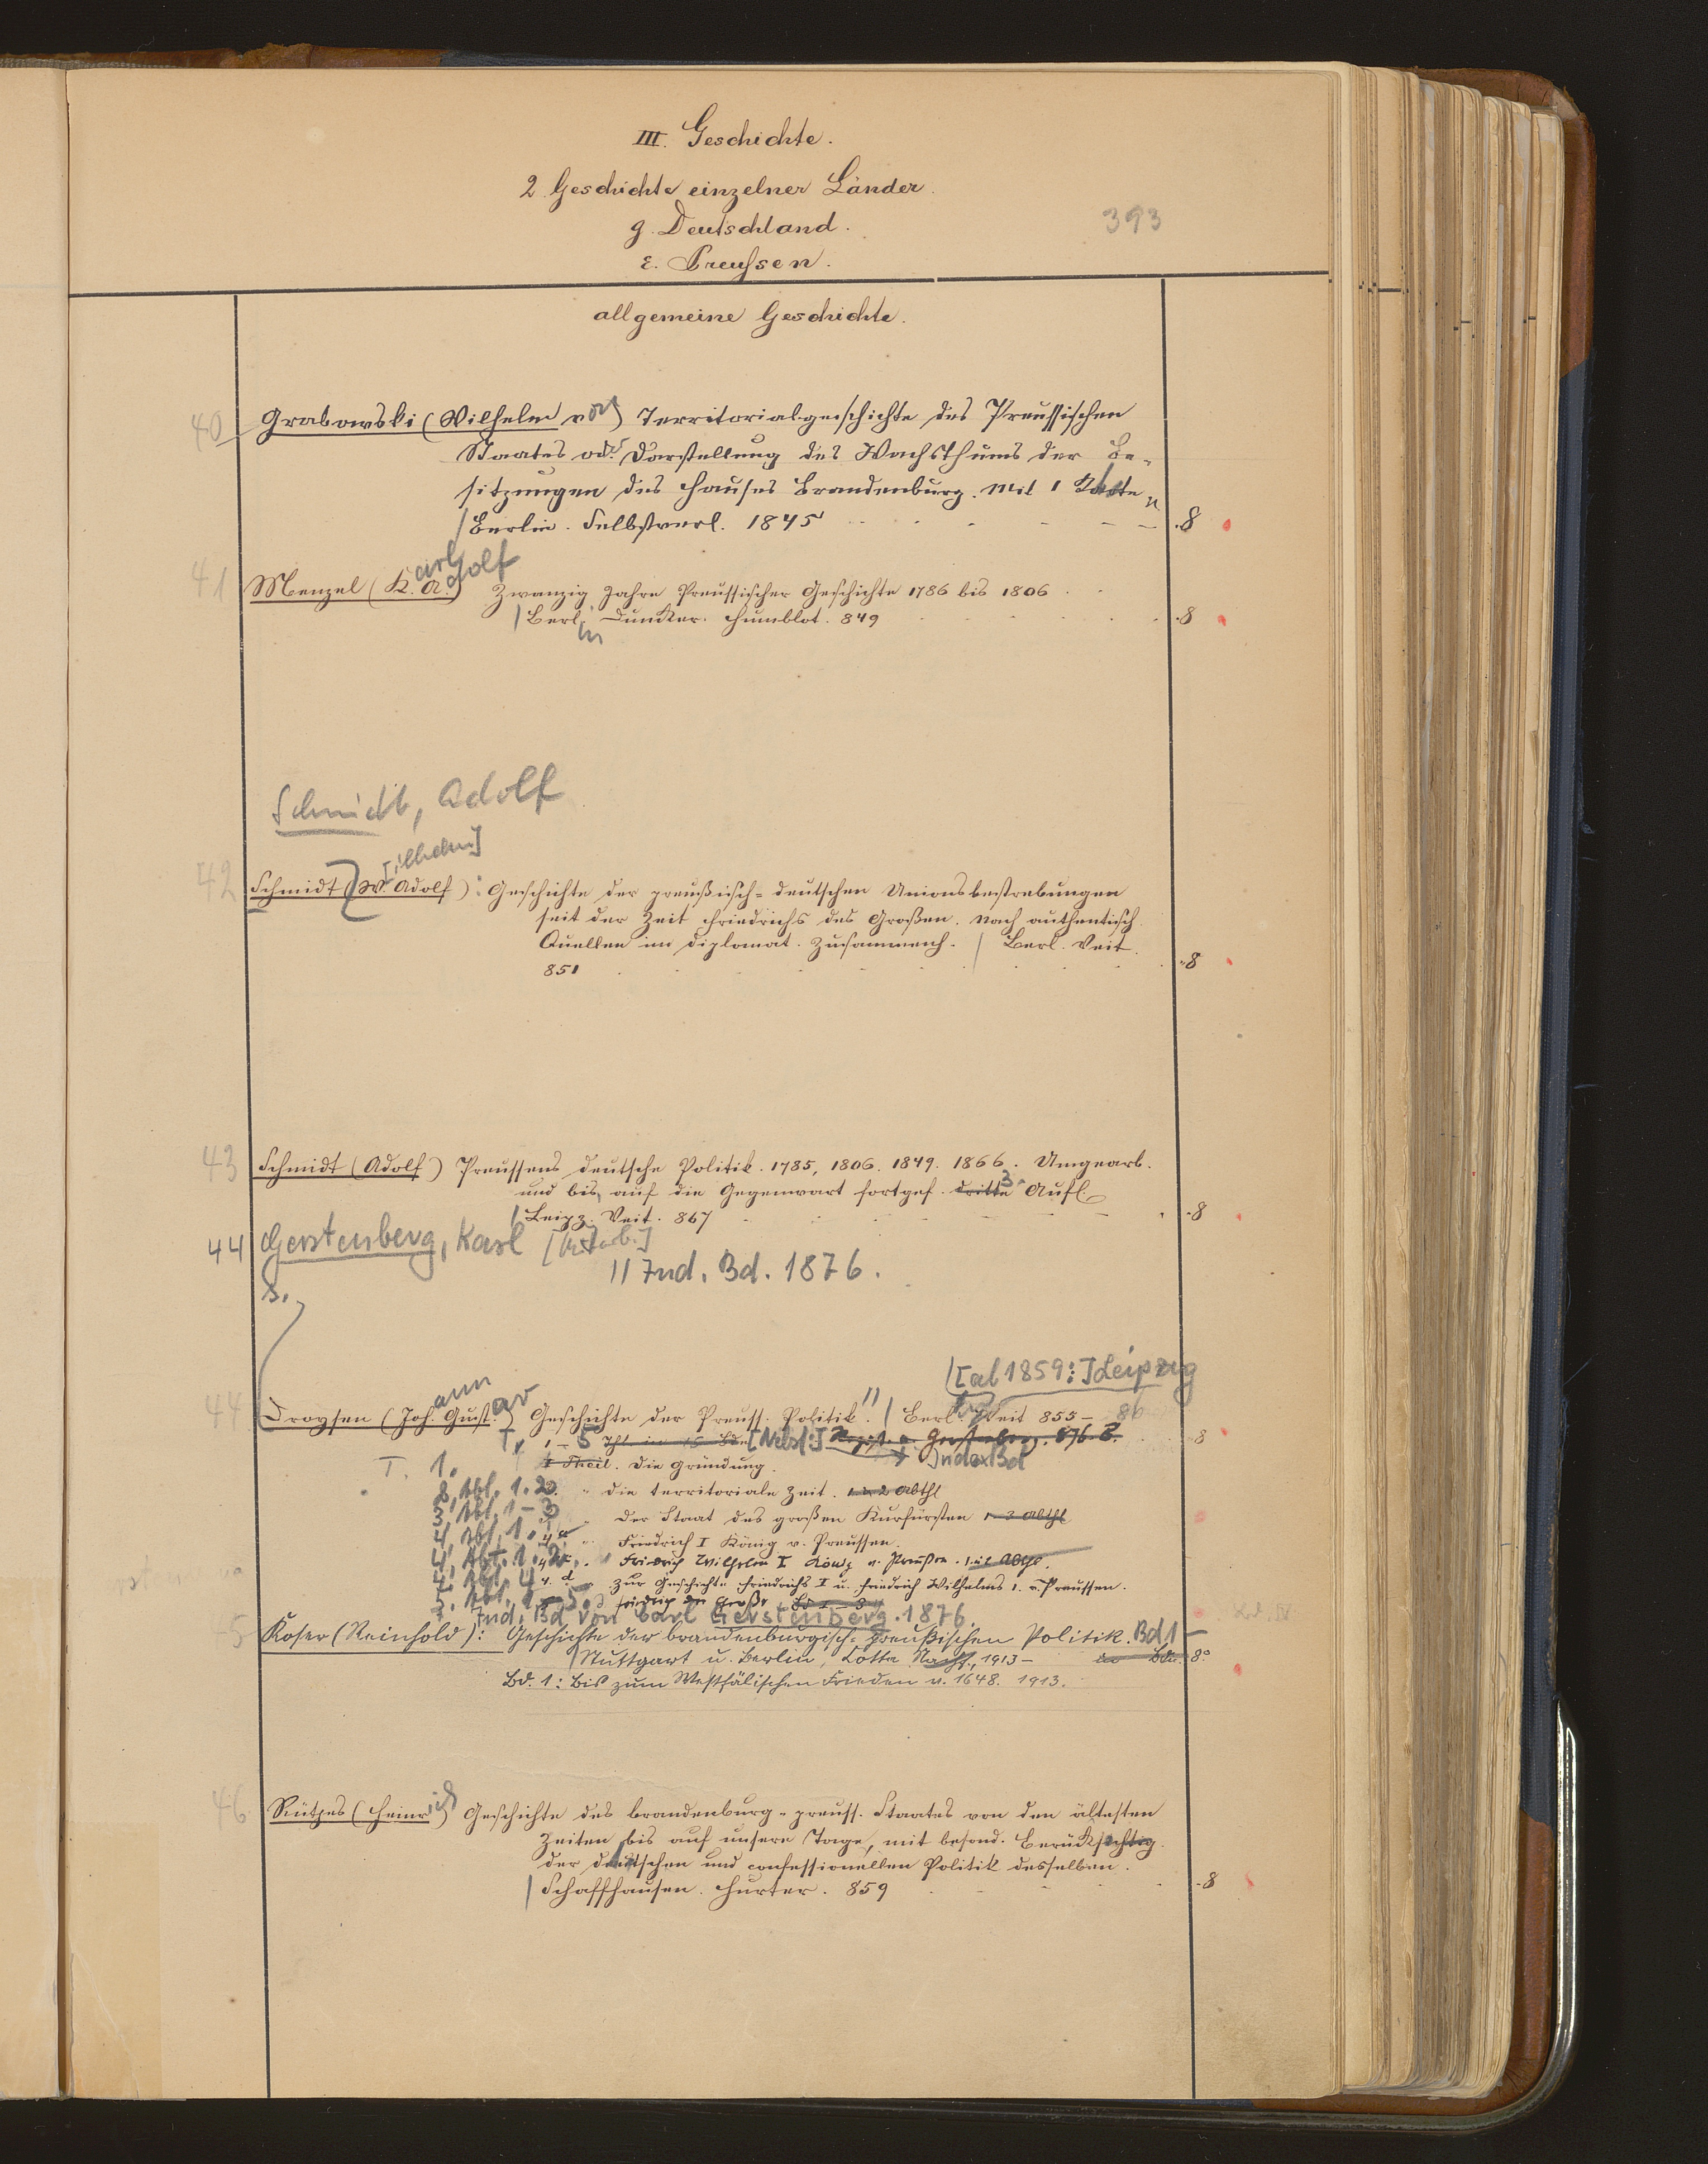 III. Geschichte.
2 Geschichte einzelner Länder.
g. Deutschland.
393
ε. Preußen.
allgemeine Geschichte.
40 Grabowski (Wilhelm von) Territorialgeschichte des Preussischen
Staates od. Darstellung des Wachsthums der Be-
sitzungen des Hauses Brandenburg. Mit 1 Karte
/ Berlin. Selbstverl. 1845 8
41 Menzel (Karl Adolf) Zwanzig Jahre Preussischer Geschichte 1786 bis 1806
/ Berlin Duncker. Humblot. 849 8
Schmidt, Adolf
42 Schmidt (W[ilhelm] Adolf): Geschichte der preußisch-deutschen Unionsbestrebungen
seit der Zeit Friedrichs des Großen. Nach authentisch.
Quellen im diplomat. Zusammenh. / Berl. Veit.
851 8
43 Schmidt (Adolf) Preussens deutsche Politik. 1785, 1806. 1849. 1866. Umgearb.
und bis auf die Gegenwart fortges. dritte 3. Aufl.
/ Leipz. Veit. 867 8
44 Gerstenberg, Karl
// Ind. Bd. 1876.
s.
/[ab 1859:] Leipzig
44 Droysen (Johann Gustav) Geschichte der Preuss. Politik. // / Berl. Veit 855 – 86 8
T. 1 – 5 Thl. in Bd. [Nebst:] Regist. v. Gerstenberg. 876. 8.
Index Bd
T. 1. I Theil. Die Gründung.
2, Abt. 1. 2. " die territoriale Zeit. 1. u. 2 Abthl
3, Abt. 1 – 3 " Der Staat des großen Kurfürsten 1–3 Abthl
4, Abt. 1. " Friedrich I König v. Preussen.
4, Abt. 1. 2. " Friedrich Wilhelm I König v. Preußen.
4, Abt. 4 4. d. " Zur Geschichte Friedrichs I u. Friedrich Wilhelms 1. v. Preussen.
5. Abt. Friedrich der Große
Ind. Bd von Carl Gerstenberg. 1876.
45 Koser (Reinhold): Geschichte der brandenburgisch-preußischen Politik. Bd 1 –
/ Stuttgart u. Berlin, Cotta Nachf., 1913 – in Bdn. 8°
Bd. 1: Bis zum Westfälischen Frieden v. 1648. 1913.
46 Rütjes (Heinrich) Geschichte des brandenburg-preuss. Staates von den ältesten
Zeiten bis auf unsere Tage, mit besond. Berücksichtig.
der deutschen und confessionellen Politik desselben.
/ Schaffhausen. Hurter. 859 8